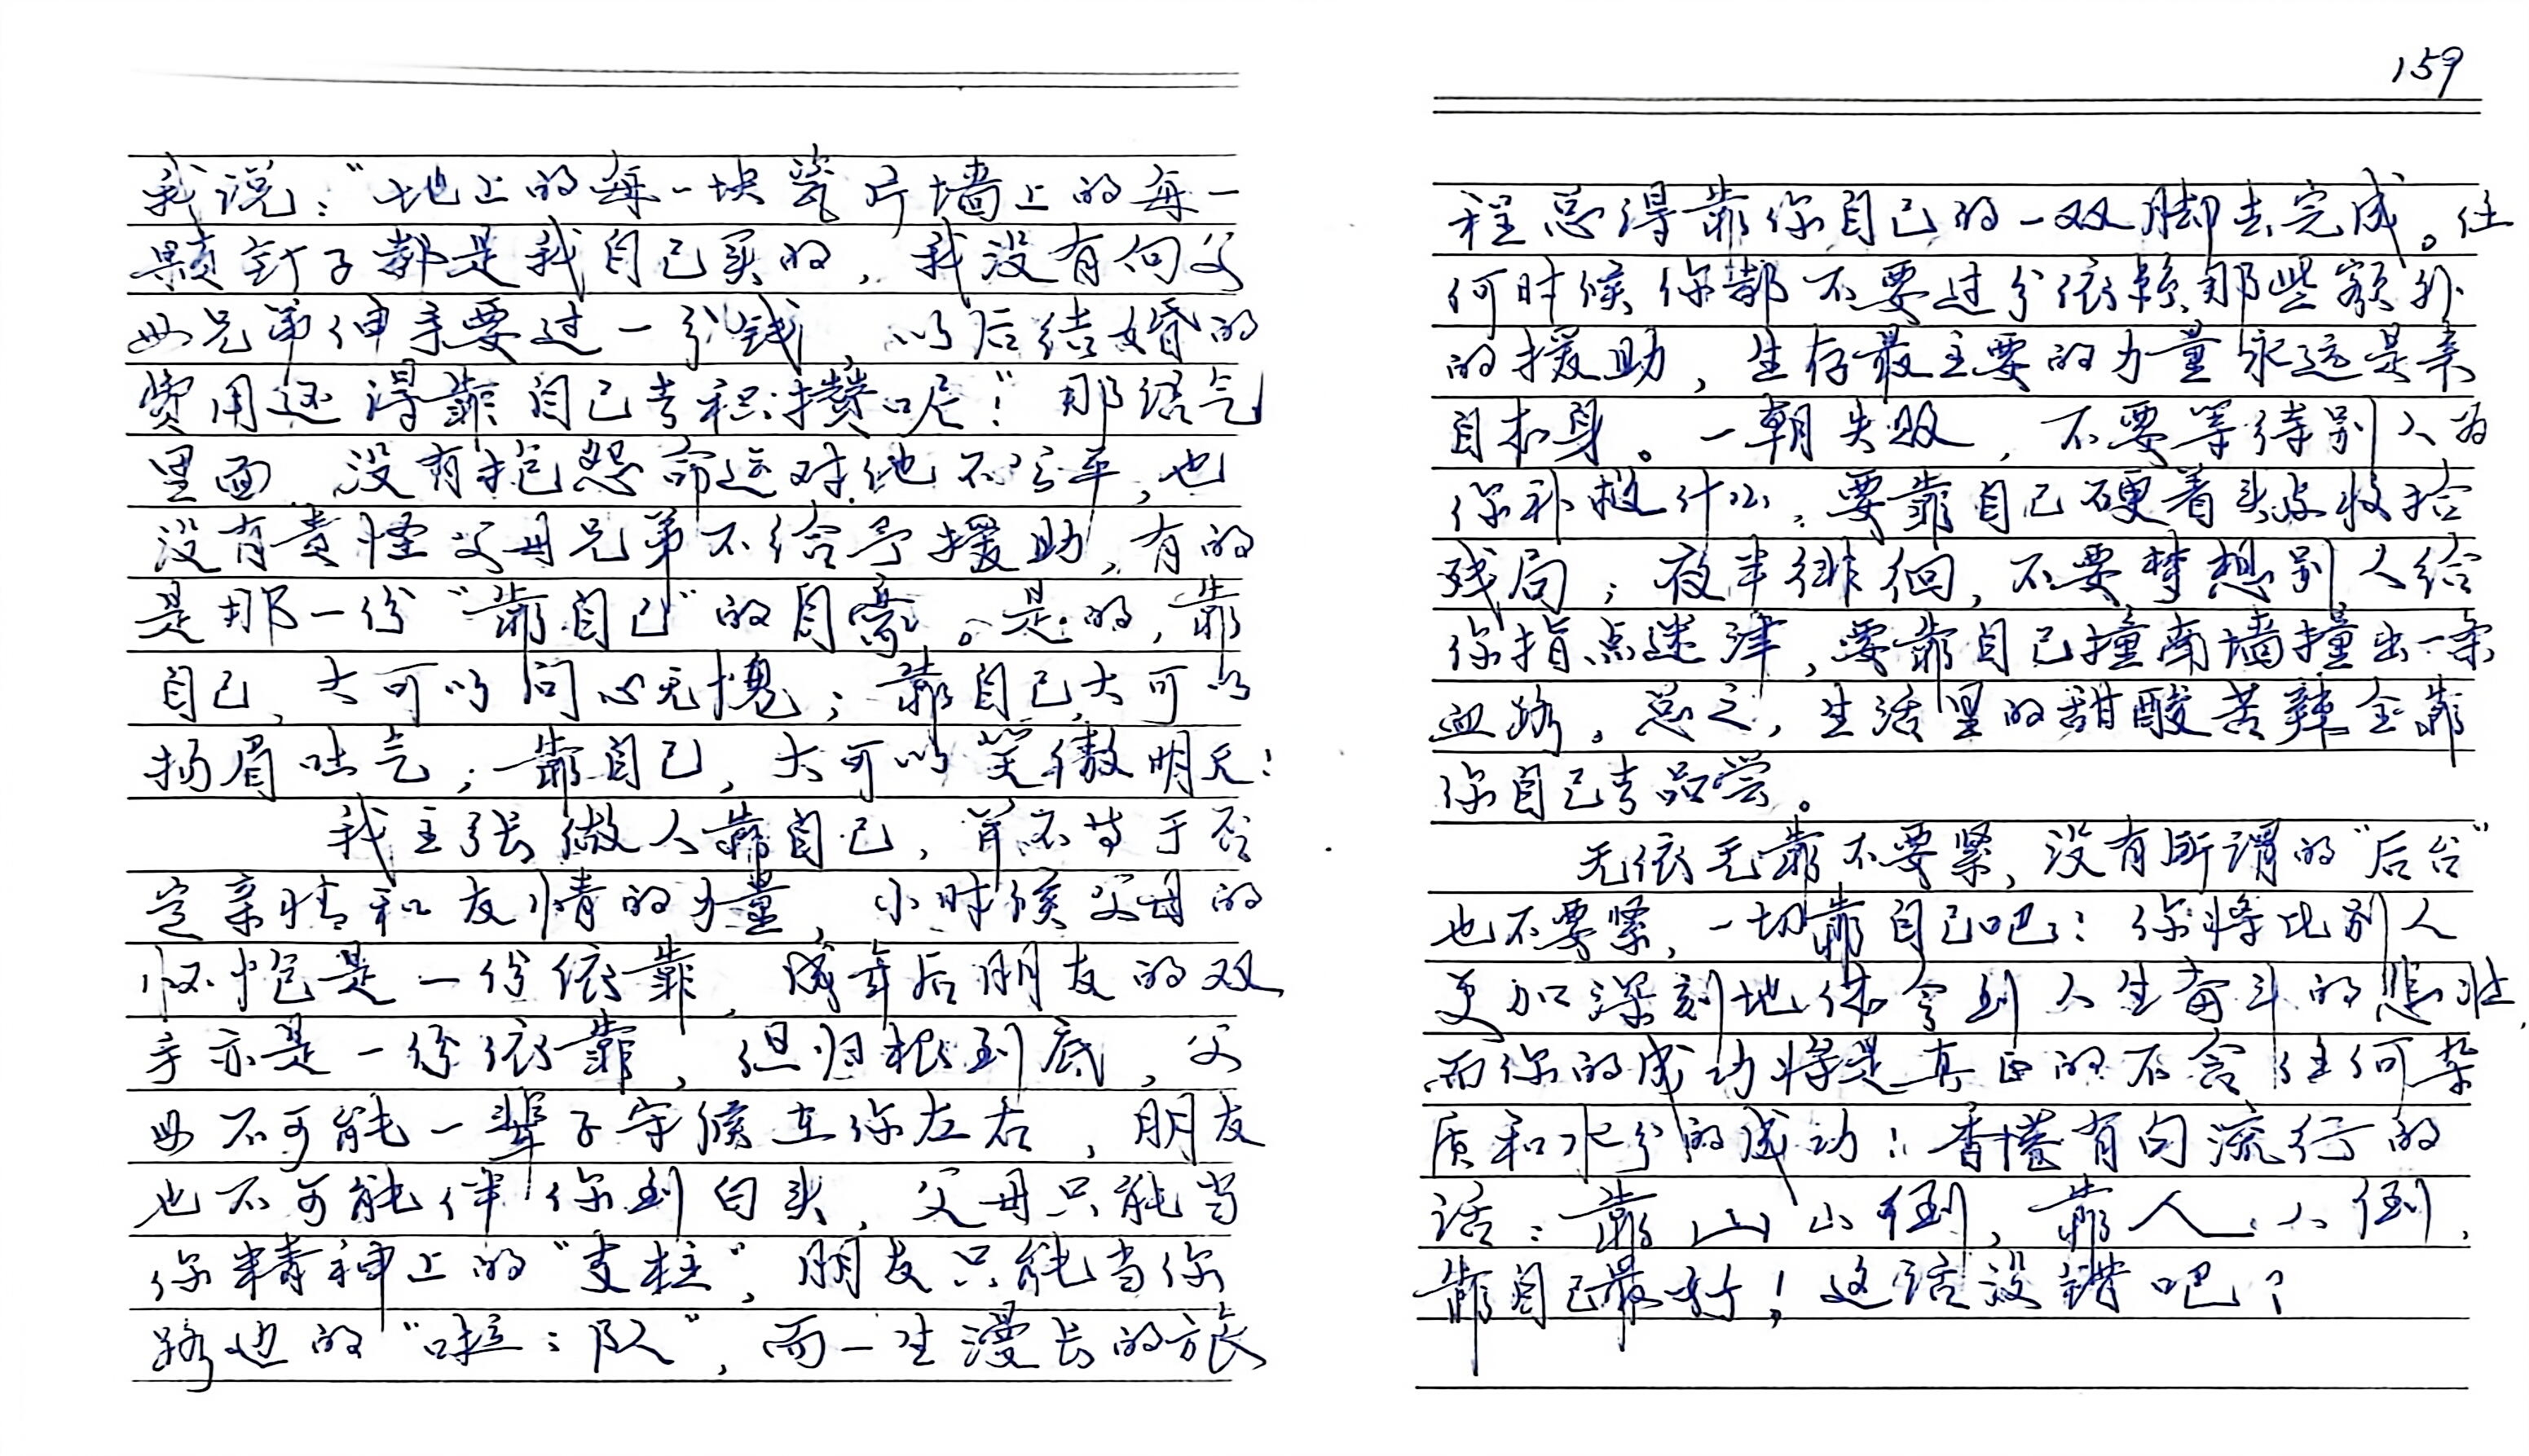 我说：“地上的每一块瓷片墙上的每一
颗钉子都是我自己买的，我没有向父
母兄弟伸手要过一分钱，以后结婚的
费用还得靠自己去积攒呢！”那语气
里面，没有抱怨命运对他不公平，也
没有责怪父母兄弟不给予援助，有的
是那一份“靠自己”的自豪。是的，靠
自己，大可以问心无愧；靠自己大可以
扬眉吐气；靠自己，大可以笑傲明天！
我主张做人靠自己，并不等于否
定亲情和友情的力量，小时候父母的
怀抱是一份依靠，成年后朋友的双
手亦是一份依靠，但归根到底，父
母不可能一辈子守候在你左右，朋友
也不可能伴你到白头，父母只能当
你精神上的“支柱”，朋友只能当你
路边的“啦：队”，而一生漫长的旅
159
程总得靠你自己的一双脚去完成。任
何时候你都不要过分依赖那些额外
的援助，生存最主要的力量永远是来
自本身。一朝失败，不要等待别人为
你补救什么，要靠自己硬着头皮收拾
残局；夜半徘徊，不要梦想别人给
你指点迷津，要靠自己撞南墙撞出一条
血路，总之，生活里的甜酸苦辣全靠
你自己去品尝。
无依无靠不要紧，没有所谓的“后台”
也不要紧，一切靠自己吧！你将比别人
更加深刻地体会到人生奋斗的悲壮，
而你的成功将是真正的不含任何杂
质和水分的成功！香港有句流行的
话：靠山山倒，靠人人倒，
靠自己最好！这话没错吧？